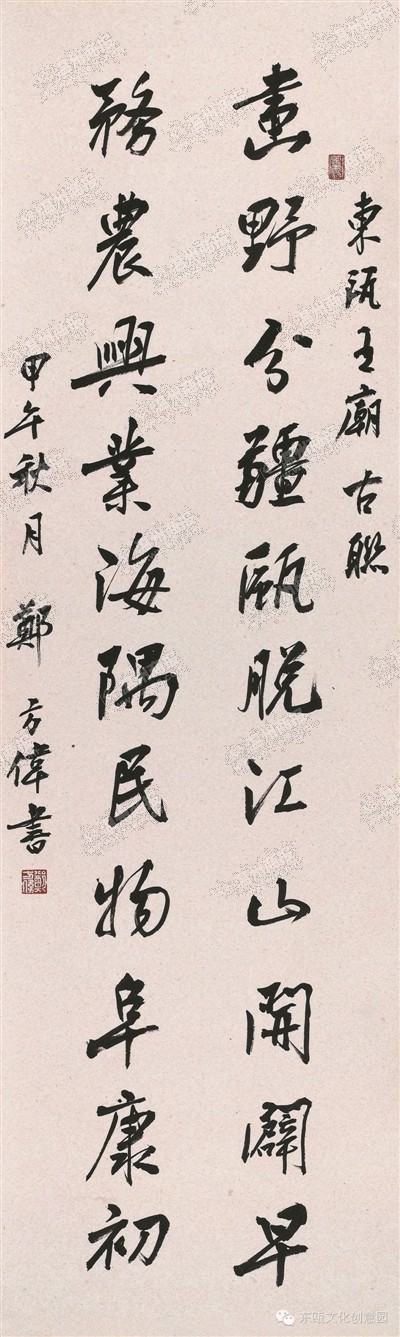 東甌王廟古聯
畫野分疆甌脱江山開闢早
務農興業海隅民物阜康初
甲午秋月 鄭方偉書
东瓯文化创意园